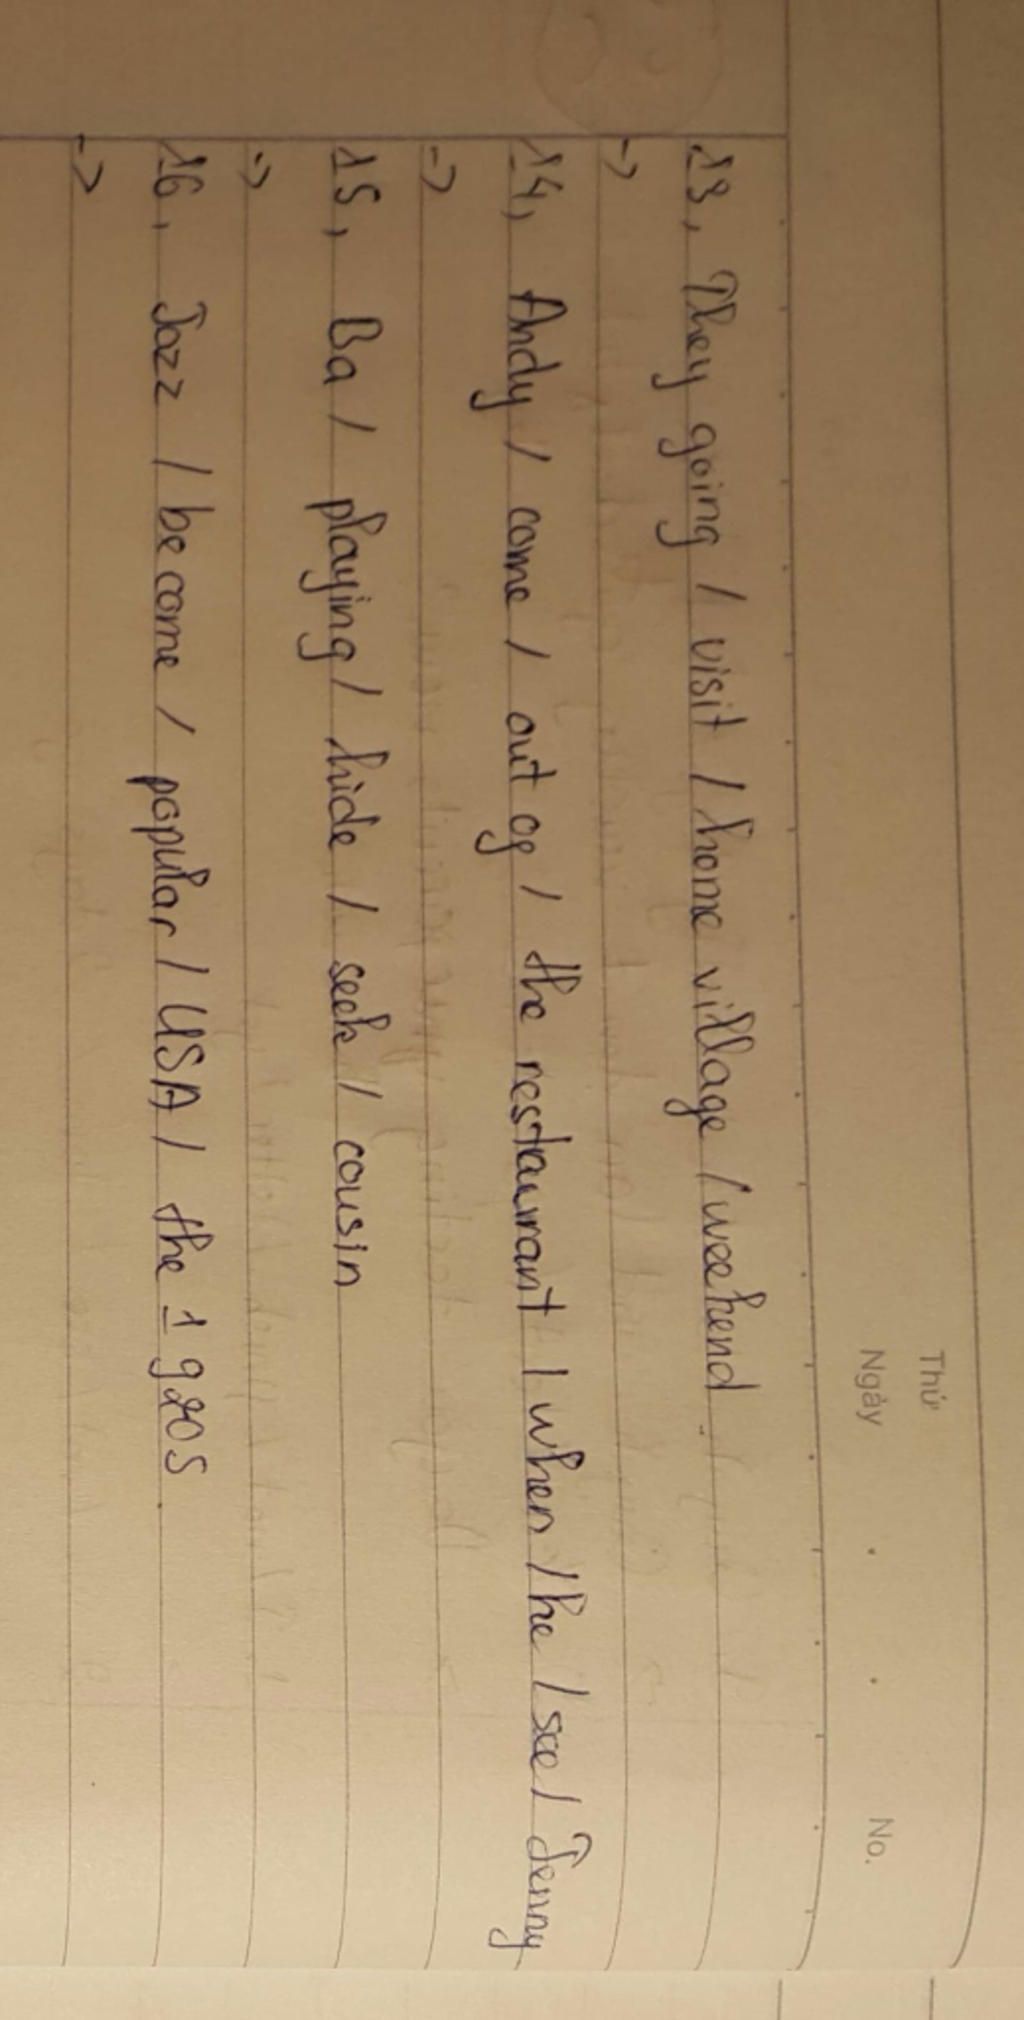 Thứ
Ngày No.
13, They going / visit / home village / weekend
->
14, Andy / come / out og / the restaurant / when / he / see / Jenny
->
15, Ba / playing / hide / seek / cousin
->
16, Jazz / become / popular / USA / the 1920s
->